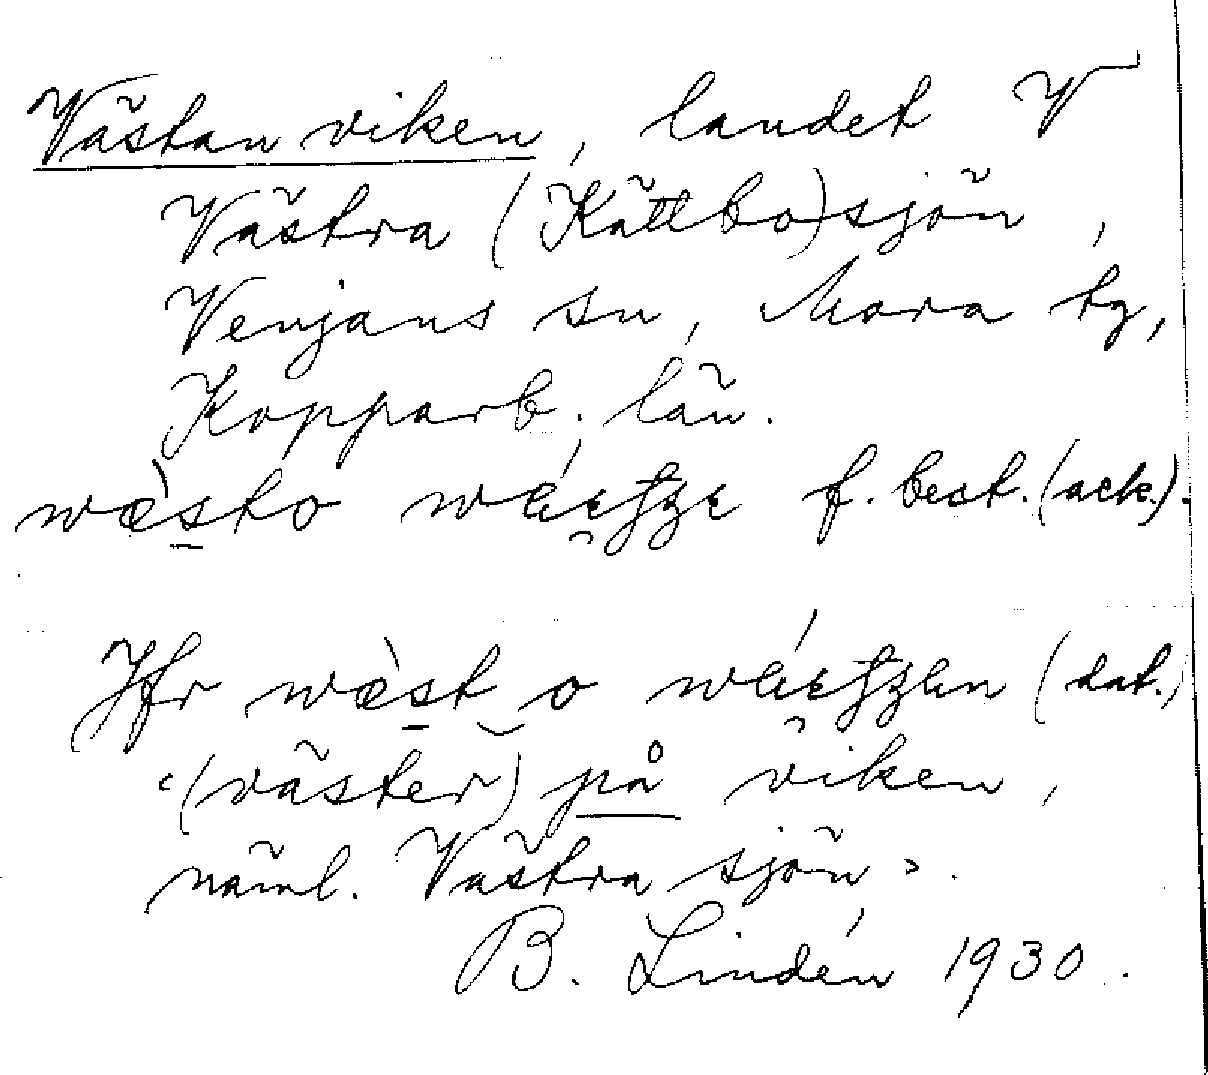 Västan viken, landet V
Västra (Kättbo)sjön,
Venjans sn, Mora tg,
Kopparb. län.
wæ̀sto f. best. (ack.).
Jfr wæ̀st o (dat.)
‹(väster) på viken,
näml. Västra sjön›.
B. Lindén 1930.